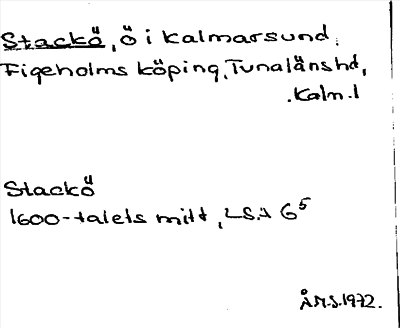 Stackö, ö i Kalmarsund.
Figeholms köping, Tunaläns hd,
Kalm. l
Stackö
1600-talets mitt, LSA G⁵
Å.M.S. 1972.